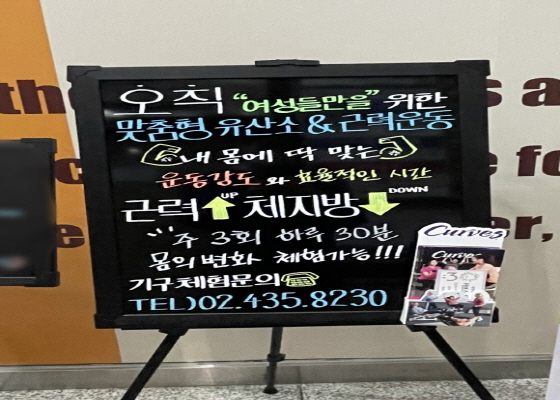 오직 "여성들만을" 위한
맞춤형 유산소 & 근력운동
내 몸에 딱 맞는
운동강도와 효율적인 시간
근력 UP 체지방 DOWN
주 3회 하루 30분
몸의 변화 체험가능!!!
기구체험문의
TEL)02.435.8230
Curves
Curves